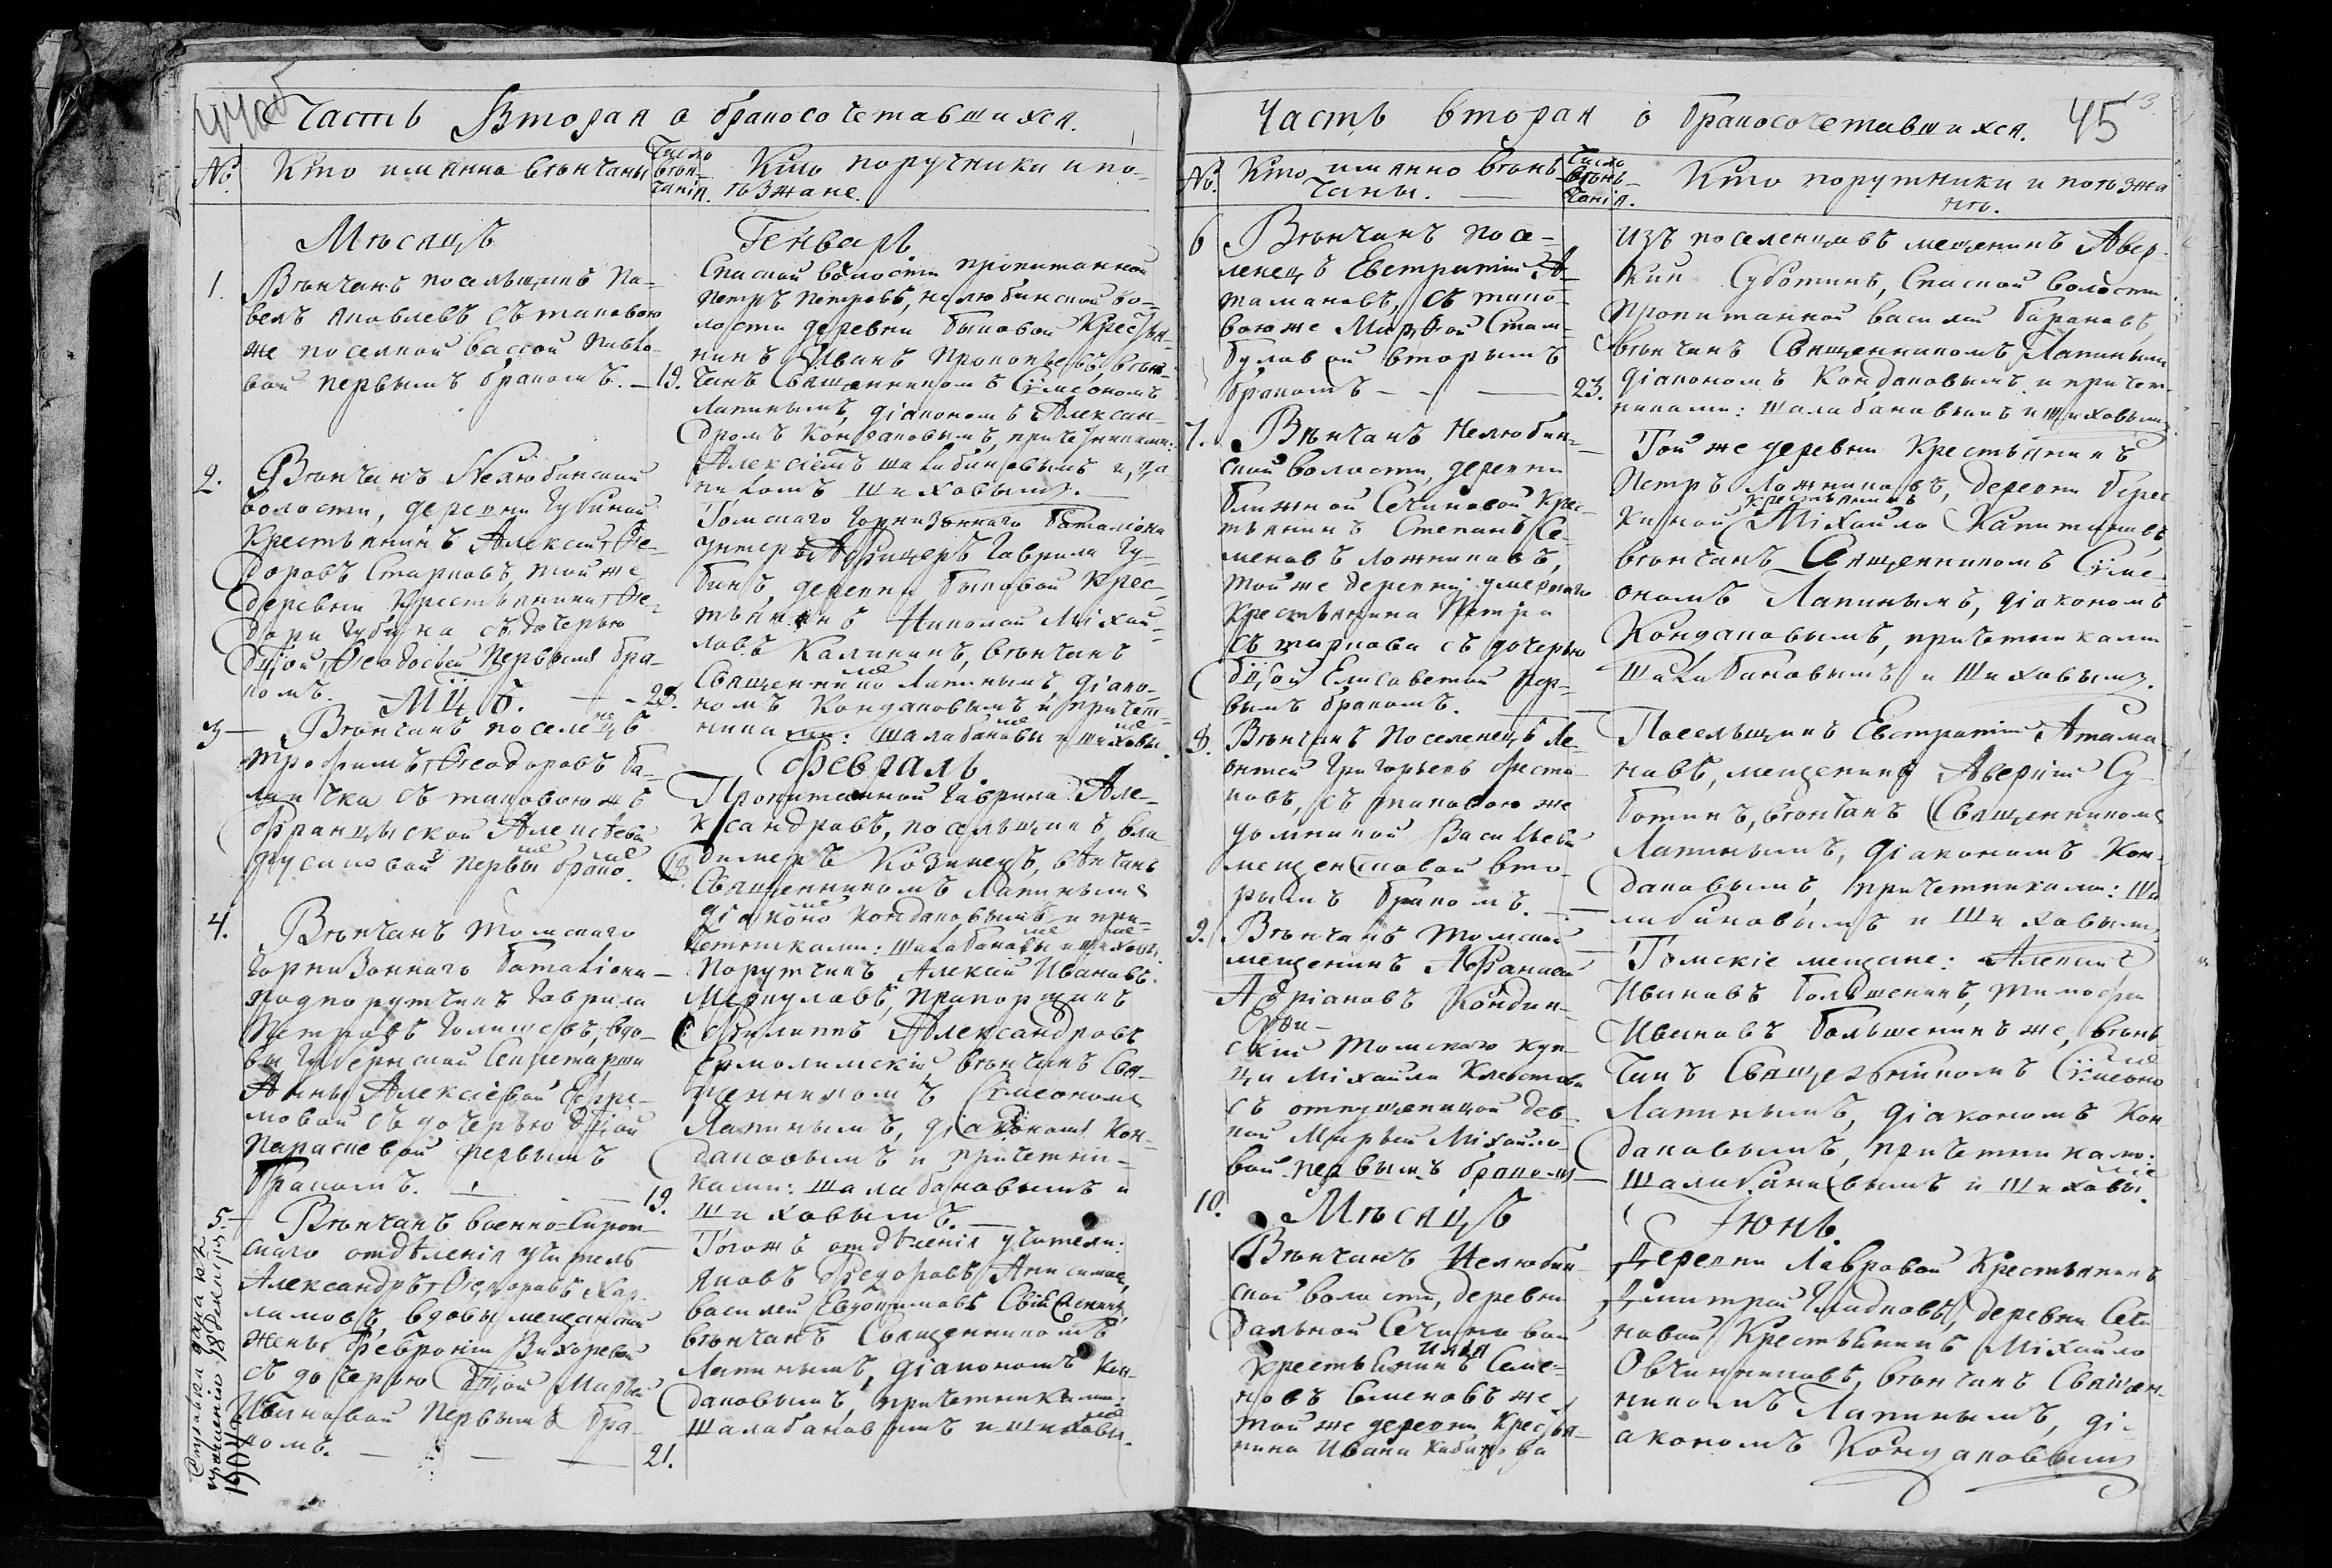 44 об
Часть Вторая о бракосочетавшихся.
№
Кто имянно венчаны
Число
вѣн-
чанія.
Кто поручники и по-
ѣзжане.
Мѣсяцъ
Генварь
1.
Вѣнчанъ посельщикъ Па-
велъ Яковлевъ съ таковою
же поселкой Вассой Павло-
вой первымъ бракомъ.
19.
Спаской волости пропитанной
Петръ Петровъ, нелюбинской во-
лости деревни Быковой Крестья-
нинъ Иванъ Прокопьевъ, вѣн-
чанъ Священникомъ Сѵмеономъ
Лапинымъ, діакономъ Алексан-
дромъ Кондаковымъ, причетниками:
Алексіемъ Шалабановымъ и
Шиховымъ.
2.
Вѣнчанъ Нелюбинской
волости, деревни Губиной
Крестьянинъ Алексій Ѳе-
доровъ Старковъ, той же
деревни Крестьянина Ѳе-
дора Губина съ дочерью
дѣвицей Ѳеодосьей первымъ бра-
комъ.
28.
Томскаго Гарнизоннаго Баталіона
унтеръ Афицеръ Гаврила Гу-
бинъ, деревни Быковой Крес-
тьянинъ Николай Михай-
ловъ Калининъ, вѣнчанъ
Священникомъ Лапинымъ, діако-
номъ Кондаковымъ и причет-
никами: Шалабановы и Шиховы.
Мцъ
Февраль.
3
Вѣнчанъ поселенецъ
Трофимъ Ѳеодоровъ
съ таковою же
Францыской Алексѣевой
первы брако.
18.
Пропитанной Гаврила Але-
ксандровъ, посельщикъ Вла-
димеръ Козинецъ, вѣнчанъ
Священникомъ Лапинымъ
діаконо Кондаковымъ и при-
четниками: Шалабановы и Шиховы.
4.
Вѣнчанъ Томскаго
Гарнизоннаго Баталіона
подпорутчикъ Гаврила
Петровъ Голишевъ, вдо-
вы Губернской Секретарши
Анны Алексіевой Ефре-
мовой съ дочерью дѣвицей
Парасковьей первымъ
бракомъ.
19.
Порутчикъ Алексій Ивановъ
Меркуловъ, Прапорщикъ
Филиппъ Александровъ
Ермолинскій, вѣнчанъ Свя-
щенникомъ Сѵмеономъ
Лапинымъ, діакономъ Кон-
даковымъ и причетни-
ками: Шалабановымъ и
Шиховымъ.
5.
Вѣнчанъ военно-Сирот-
скаго отдѣленія учитель
Александръ Ѳедоровъ Хар-
ламовъ, вдовы мещанской
жены Февроніи Вихоревой
съ дочерью дѣвицей Марьей
Ивановой первымъ бра-
комъ.
21.
Тогожъ отдѣленія учители:
Яковъ Федоровъ Анисимовъ,
Василей Евдокимовъ
вѣнчанъ Священникомъ
Лапинымъ, діакономъ Кон-
даковымъ, причетниками:
Шалабановымъ и Шиховы.
18 Декабря
1904 г.
45
Часть вторая о бракосочетавшихся.
№.
Кто имянно вѣн-
чаны.
Число
вѣнь-
чанія.
Кто порутчики и поѣзжа
не.
6
Вѣнчанъ посе-
ленецъ Евстратій А-
тамановъ, съ тако-
вою же Марфой Стам-
буловой вторымъ
бракомъ
23.
Изъ поселенцовъ мещенинъ Авер-
кии Суботинъ, Спаской волости
Пропитанной Василій Барановъ,
вѣнчанъ Священникомъ Лапинымъ
діакономъ Кондаковымъ и причет-
никами: Шалабановымъ и Шиховымъ.
7.
Вѣнчанъ Нелюбин-
ской волости, деревни
ближной Сечиновой Крес-
тьянинъ Степанъ Се-
меновъ Ложниковъ,
той же деревни умершаго
Крестьянина Петра
Старкова съ дочерью
дѣвицей Елисаветой пер-
вымъ бракомъ.
Той же деревни Крестьянинъ
Петръ Ложниковъ, деревни Берес
киной Крестьянинъ Михайло Капитоновъ,
вѣнчанъ Священникомъ Сѵме-
ономъ Лапинымъ, діакономъ
Кондаковымъ, причетниками
Шалабановымъ и Шиховымъ.
8.
Вѣнчанъ поселенецъ Ле-
онтей Григорьевъ
съ таковою же
Домникой Васильевой
вто-
рымъ бракомъ.
Посельщикъ Евстратій Атама-
новъ, мещенинъ Аверкій Су-
ботинъ, вѣнчанъ Священникомъ
Лапинымъ, діакономъ Кон-
даковымъ, причетниками: Ша-
лабановымъ и Шиховымъ.
9.
Вѣнчанъ Томской
мещенинъ Афанасій
Адріановъ Кондин-
скій Томскаго куп-
ца Михайла
съ отпущеницой дев-
кой Марьей Михайло-
вой первымъ бракомъ
Томскіе мещане: Алексій
Ивановъ Большенинъ, Тимофей
Ивановъ Большенинъ же, вѣнь-
чанъ Священникомъ Сѵмеоно
Лапинымъ, діакономъ Кон
даковымъ, причетниками:
Шалабановымъ и Шиховы.
10.
Мѣсяцъ
Іюнь.
Вѣнчанъ Нелюбин-
ской волости, деревни
дальной Сечиновой
Крестьянинъ Илья Семе-
новъ Семеновъ же
той же деревни Крестья-
нина Ивана
Деревни Лавровой Крестьянинъ
Дмитрей Гладковъ, деревни Сечи
новой Крестьянинъ Михайло
Овчинниковъ, вѣнчанъ Священ-
никомъ Лапинымъ, ді-
акономъ Кондаковымъ